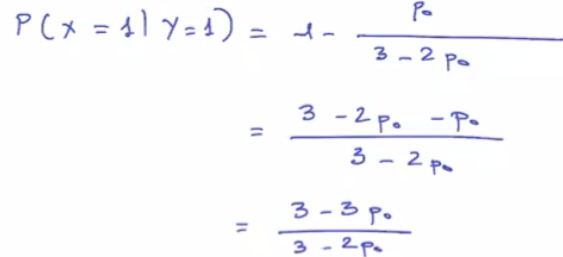 P(X = 1 | Y = 1) = 1 - \frac{p_0}{3 - 2p_0}
= \frac{3 - 2p_0 - p_0}{3 - 2p_0}
= \frac{3 - 3p_0}{3 - 2p_0}